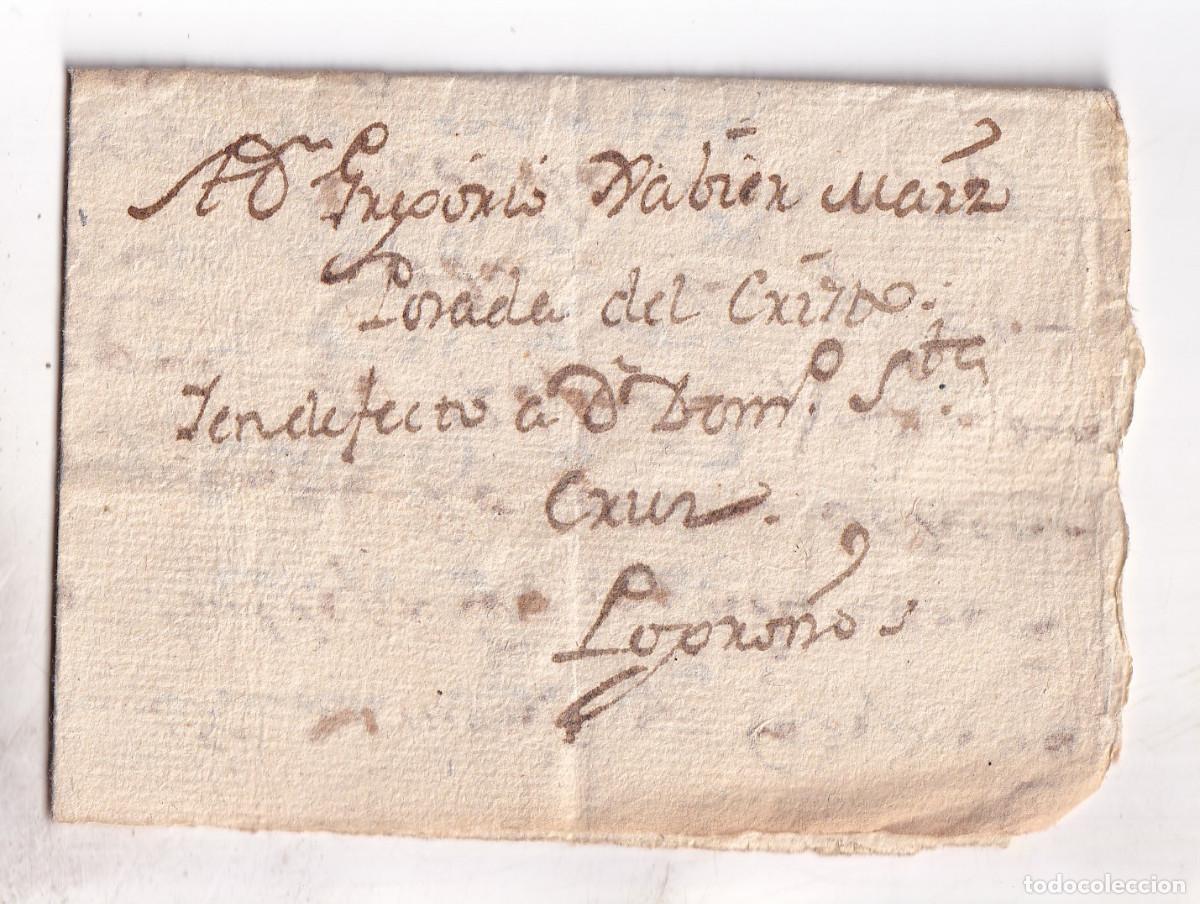 A Dn Gregorio Xabier Marz
Posada del Cristo.
Yendefecto a Dn Domo. Sta.
Cruz.
Logroño
todocoleccion